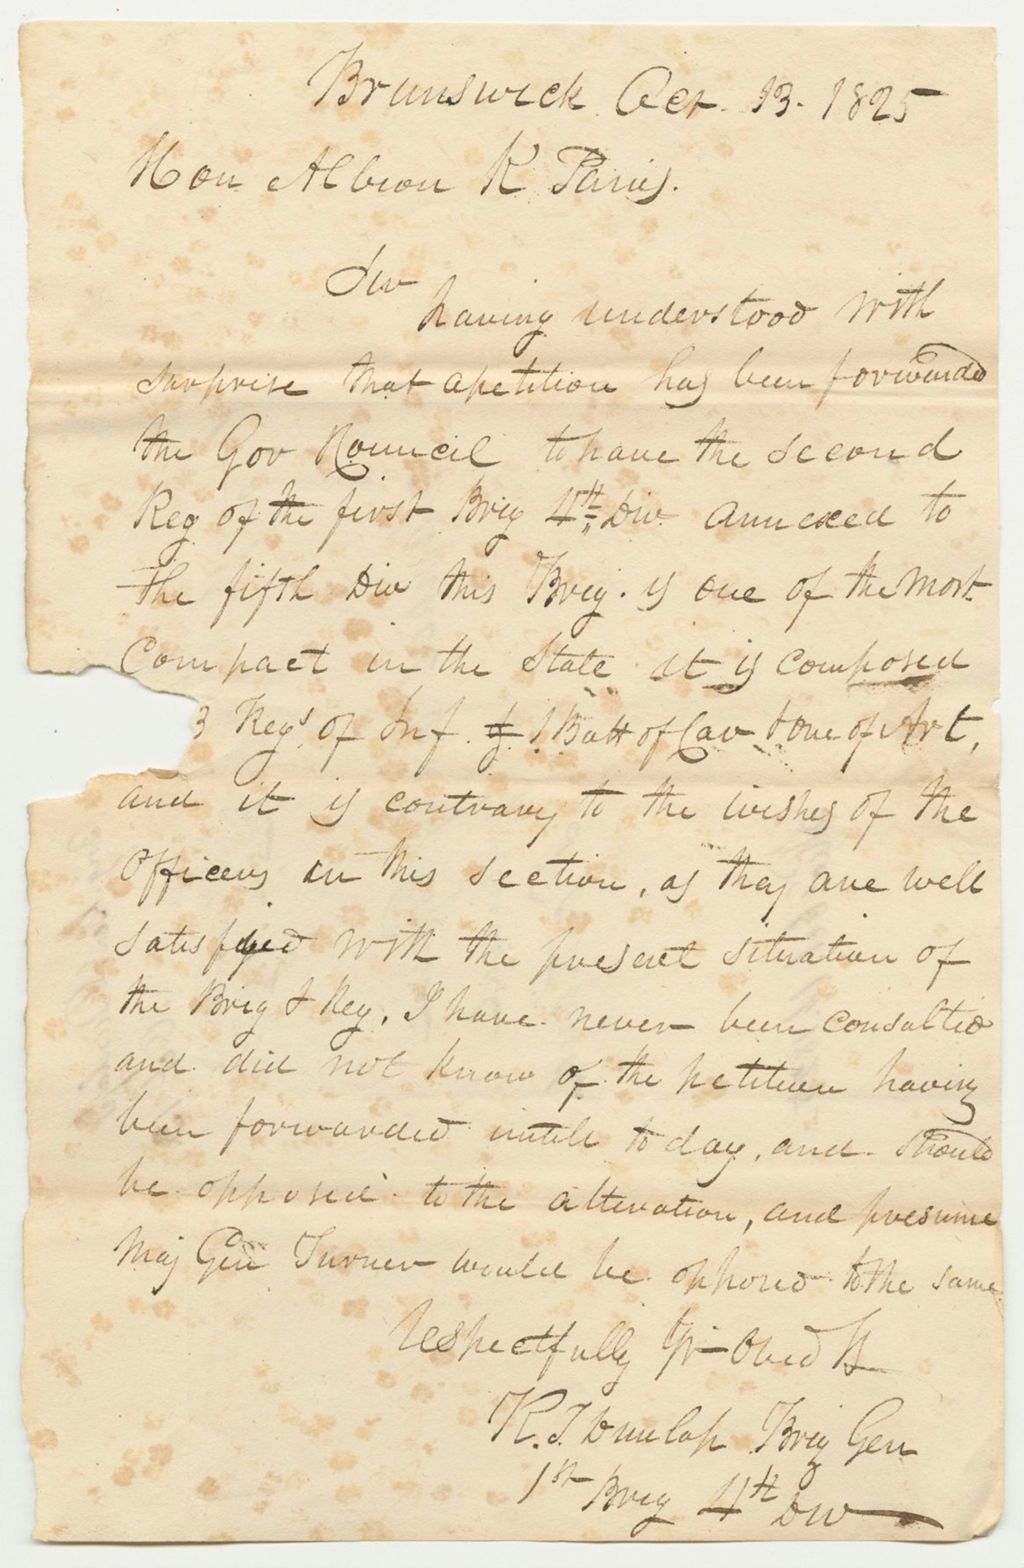 Brunswick Oct. 13. 1825
Hon Albion K Parris.
Sir
having understood with
surprise that apetition has been forwarded
the Gov & Council to have the second
Reg of the first Brig 4th Div annexed to
the fifth Div this Brig. is one of the most
Compact in the State it is composed
3 Regs of Inf. 1 Batt of Cav & One of Art,
and it is contrary to the wishes of the
Officers in this section, as they are well
satisfyed with the present situation of
the Brig & Reg, I have never been consulted
and did not know of the petition having
been forwarded untill to day, and should
be opposed to the alteration, and presume
Maj Gen Turner would be opposed to the same
Respectfully Yr Obed St
R.T. Dunlap Brig Gen
1st Brig 4th Div